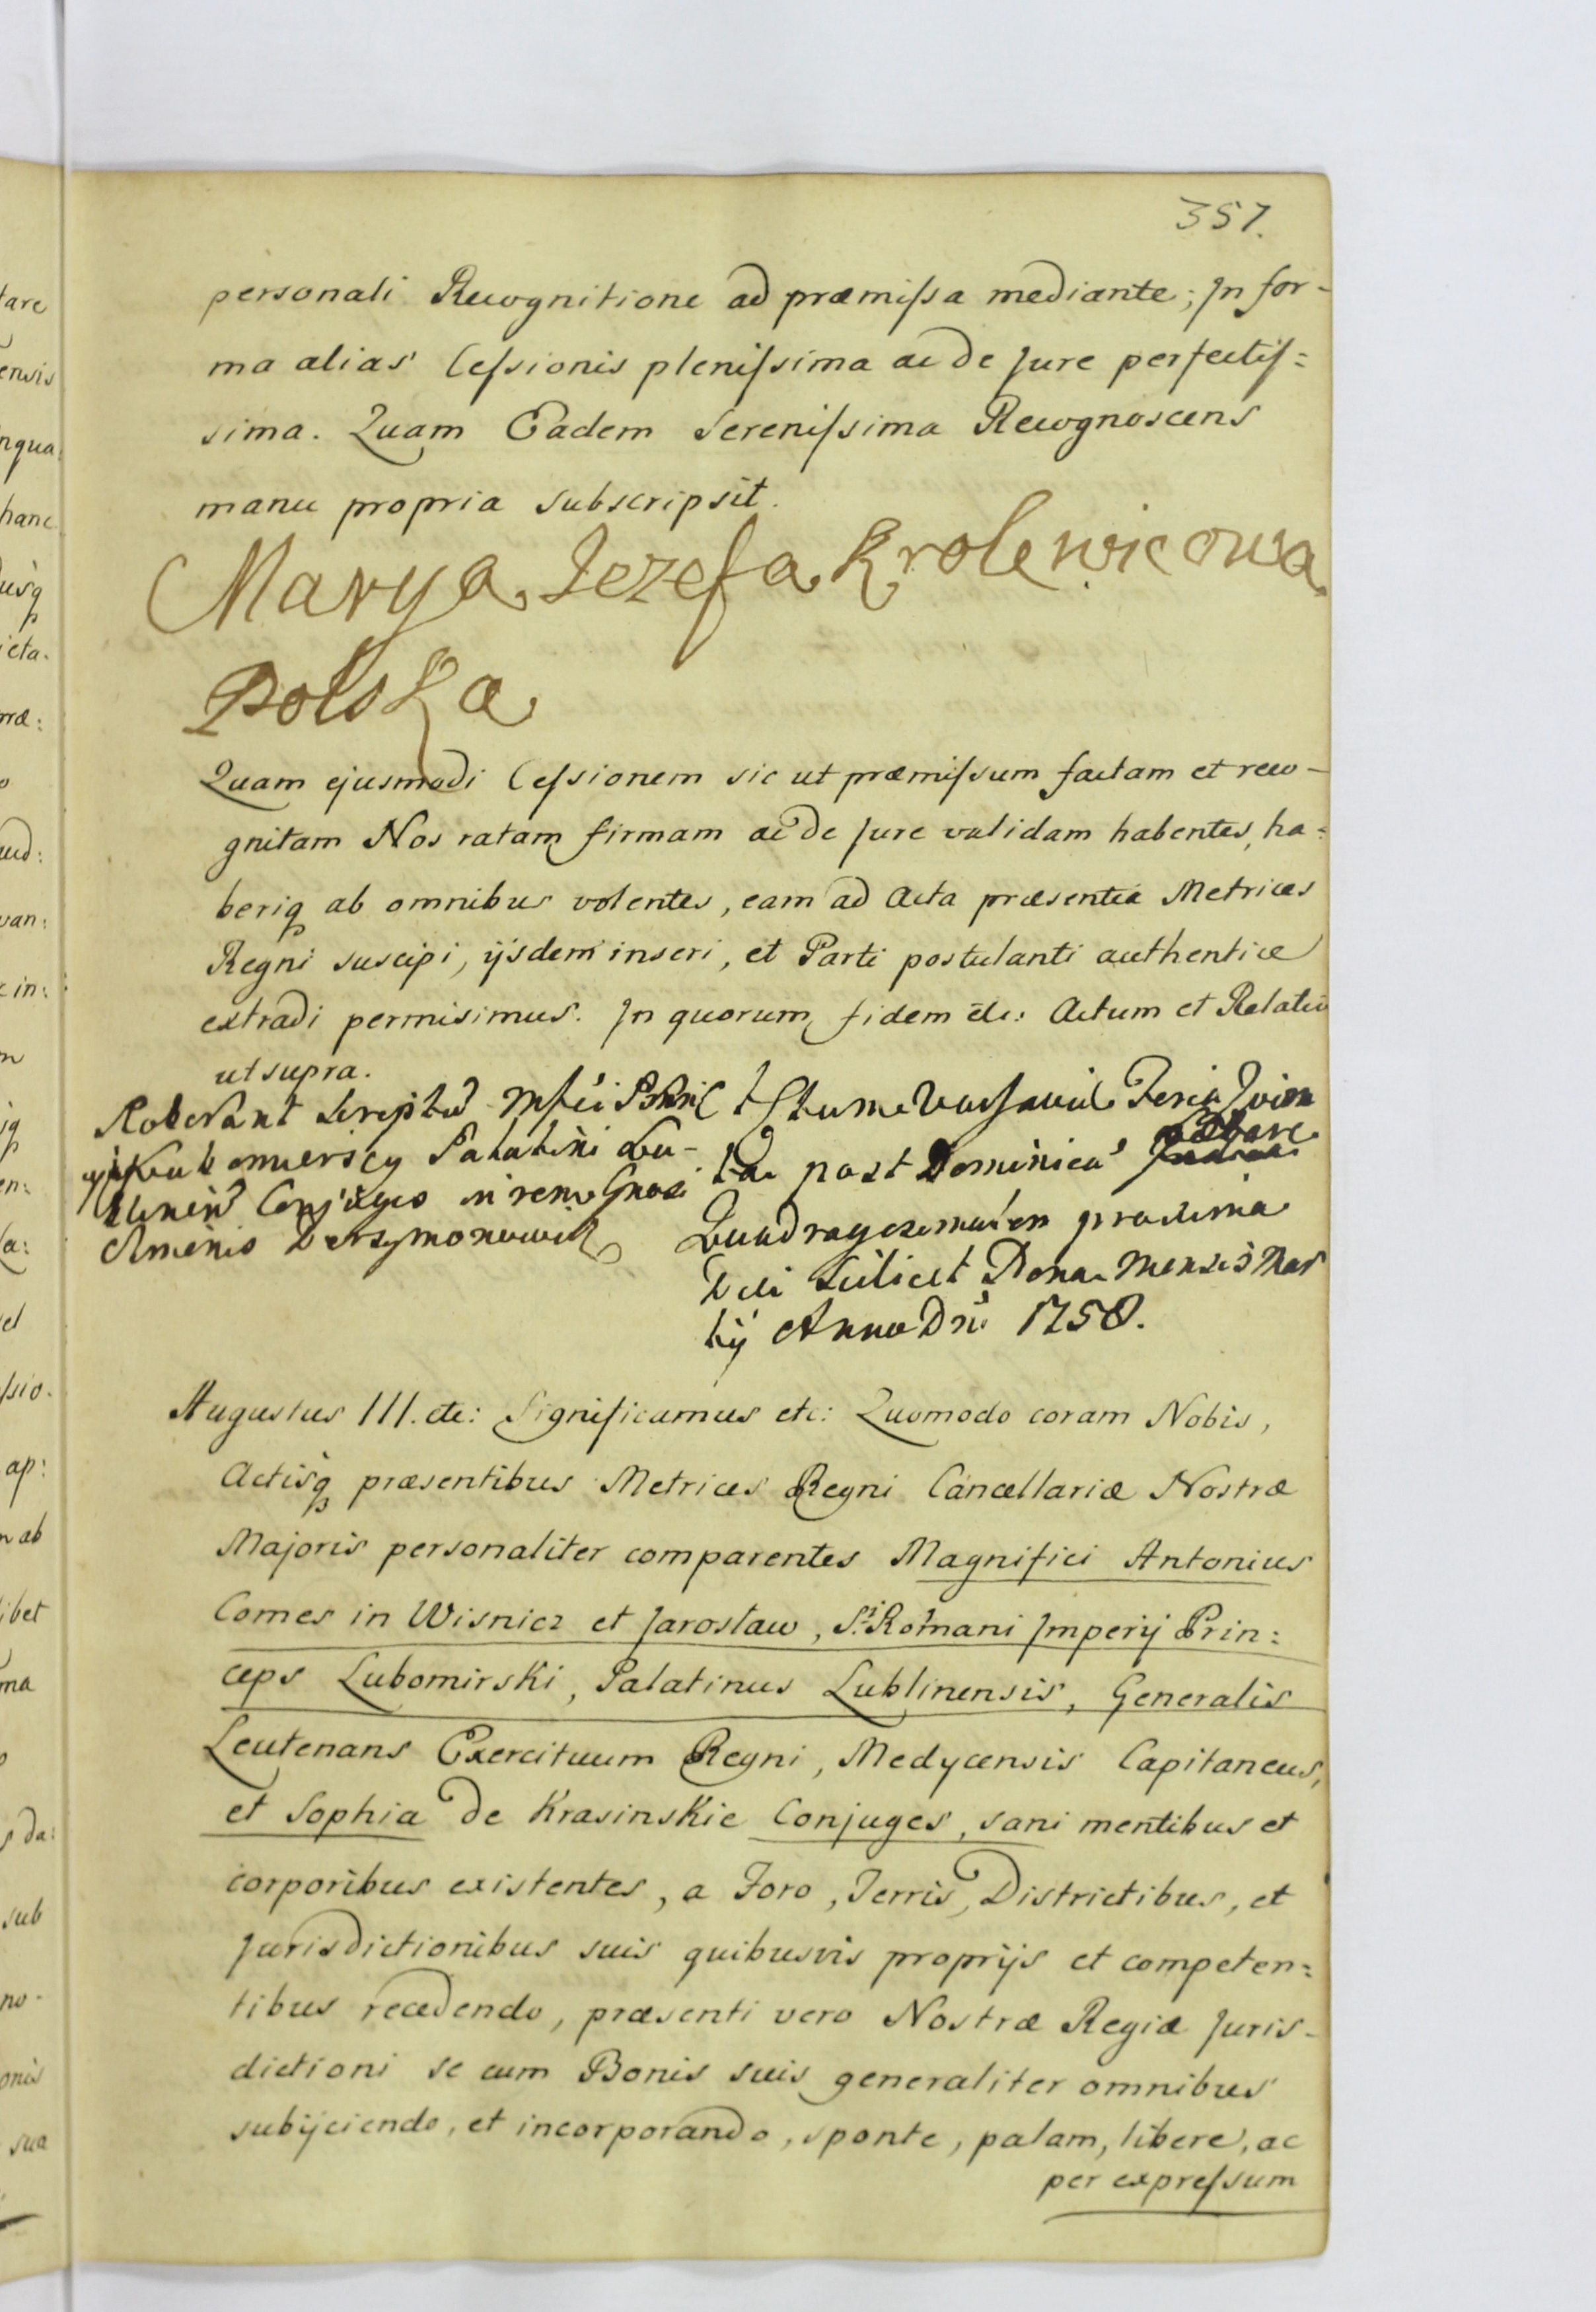 357.
personali Recognitione ad præmissa mediante; In for-
ma alias Cessionis plenissima ac de Jure perfectis=
sima. Quam Eadem Serenissima Recognoscens
manu propria subscripsit.
Marya Jozefa Krolewicowa
Polska
Quam ejusmodi Cessionem sic ut præmissum factam et reco-
gnitam Nos ratam firmam ac de Jure validam habentes, ha=
beriq ab omnibus volentes, eam ad Acta præsentia Metrices
Regni suscipi, ijsdem inseri, et Parti postulanti authentice
extradi permisimus. In quorum fidem etc: Actum et Relatio
ut supra.
Roborant Scriptum
Palatini Lu-
Conjuges in rem Gnosi
Actum Varsaviæ Feria Quin
ta post Dominicam Lætare
Quadragesimalem proxima
Die scilicet Nona Mensis Mar
tij Anno Dni 1758.
Augustus III. etc: Significamus etc: Quomodo coram Nobis,
Actisq præsentibus Metrices Regni Cancellariæ Nostræ
Majoris personaliter comparentes Magnifici Antonius
Comes in Wisnicz et Jarosław, S.ri Romani Imperij Prin=
ceps Lubomirski, Palatinus Lublinensis, Generalis
Leutenans Exercituum Regni, Medycensis Capitaneus,
et Sophia de Krasinskie Conjuges, sani mentibus et
corporibus existentes, a Foro, Terris, Districtibus, et
Jurisdictionibus suis quibusvis proprijs et competen=
tibus recedendo, præsenti vero Nostræ Regiæ Juris-
dictioni se cum Bonis suis generaliter omnibus
subijciendo, et incorporando, sponte, palam, libere, ac
per expressum